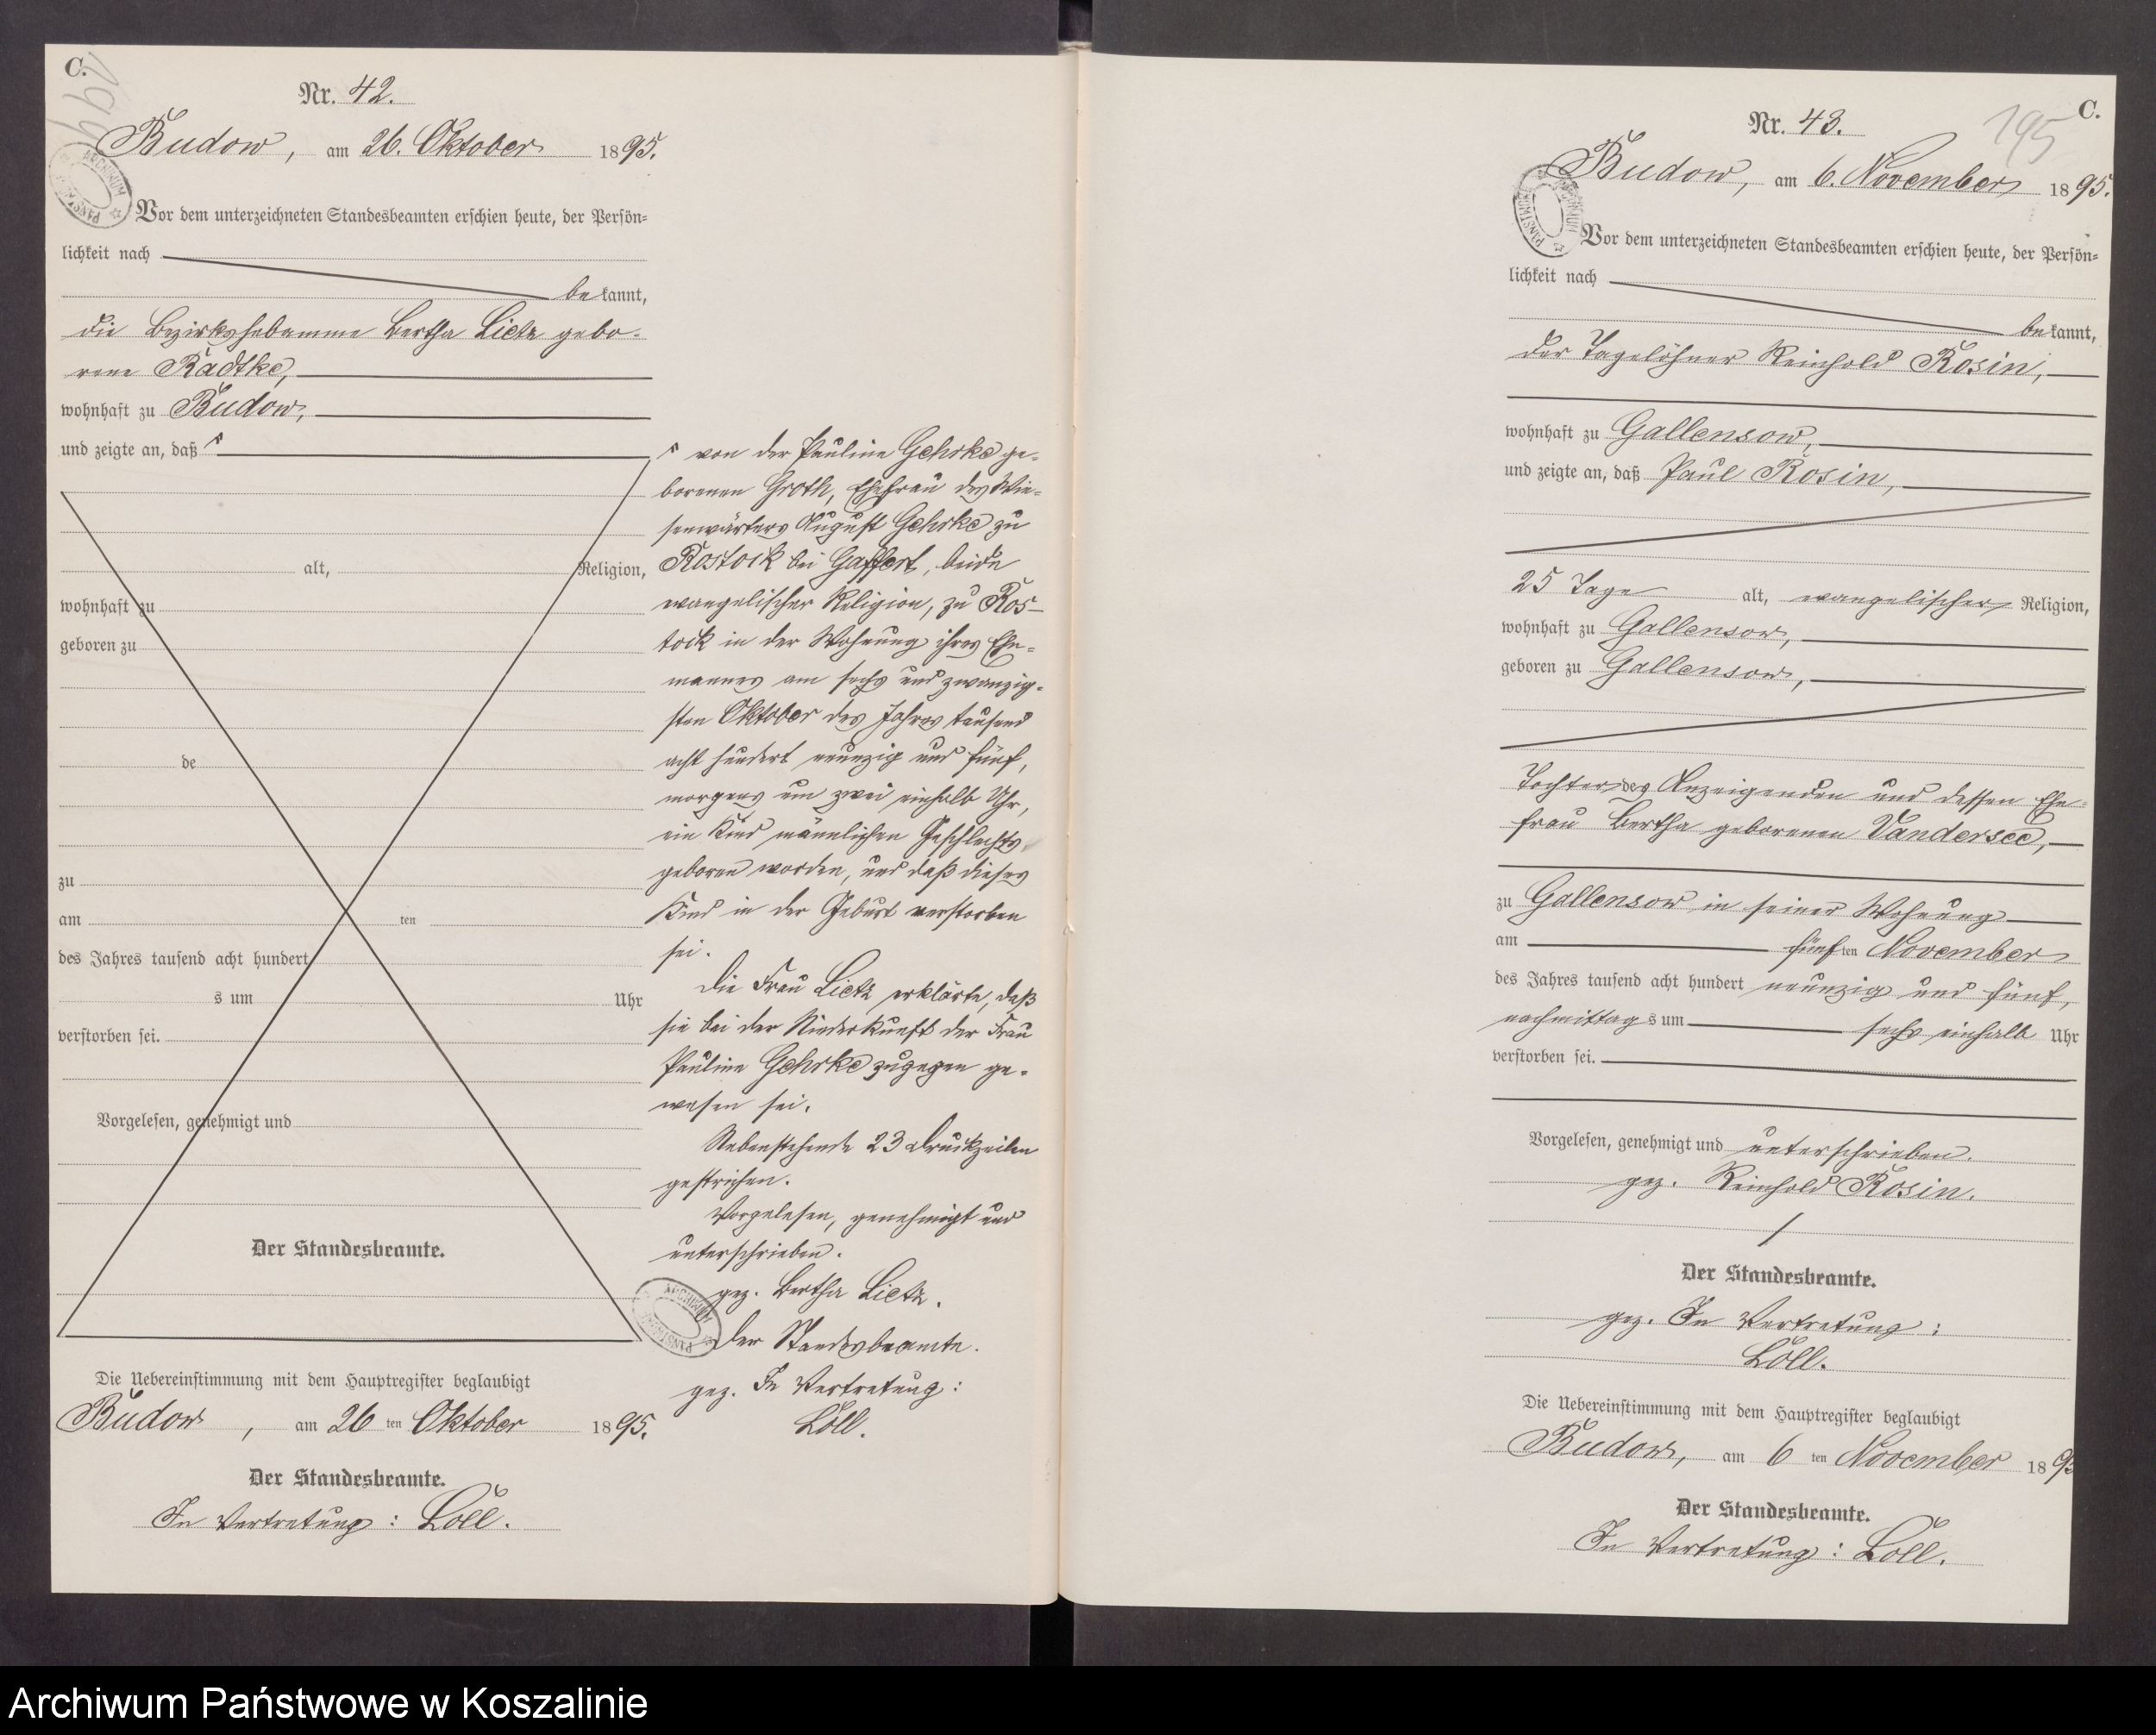 C.
194
Nr. 42.
Budow, am 26. Oktober 1895.
Vor dem unterzeichneten Standesbeamten erschien heute, der Persön=
lichkeit nach
bekannt,
die Bezirkshebamme Bertha Lietz gebo-
rene Radtke,
wohnhaft zu Budow,
und zeigte an, daß
alt, Religion,
wohnhaft zu
geboren zu
de
zu
am ten
des Jahres tausend acht hundert
s um Uhr
verstorben sei.
Vorgelesen, genehmigt und
Der Standesbeamte.
von der Pauline Gehrke ge-
borenen Groth, Ehefrau des Wie-
senwärters August Gehrke zu
Rostock bei Gaffert, beide
evangelischer Religion, zu Ros-
tock in der Wohnung ihres Ehe-
mannes am sechs und zwanzig-
sten Oktober des Jahres tausend
acht hundert neunzig und fünf,
morgens um zwei einhalb Uhr,
ein Kind männlichen Geschlechts
geboren worden, und daß dieses
Kind in der Geburt verstorben
sei.
Die Frau Lietz erklärte, daß
sie bei der Niederkunft der Frau
Pauline Gehrke zugegen ge-
wesen sei.
Nebenstehende 23 Druckzeilen
gestrichen.
Vorgelesen, genehmigt und
unterschrieben.
gez. Bertha Lietz.
Der Standesbeamte.
gez. In Vertretung:
Loll.
Die Uebereinstimmung mit dem Hauptregister beglaubigt
Budow, am 26 ten Oktober 1895.
Der Standesbeamte.
In Vertretung: Loll.
ARCHIWUM PAŃSTWOWE
C.
195
Nr. 43.
Budow, am 6. November 1895.
Vor dem unterzeichneten Standesbeamten erschien heute, der Persön=
lichkeit nach
bekannt,
der Tagelöhner Reinhold Rosin,
wohnhaft zu Gallensow,
und zeigte an, daß Paul Rosin,
25 Tage alt, evangelischer Religion,
wohnhaft zu Gallensow,
geboren zu Gallensow,
Tochter des Anzeigenden und dessen Ehe-
frau Bertha geborenen Vandersee,
zu Gallensow in seiner Wohnung
am fünften November
des Jahres tausend acht hundert neunzig und fünf,
nachmittags um sechs einhalb Uhr
verstorben sei.
Vorgelesen, genehmigt und unterschrieben.
gez. Reinhold Rosin.
Der Standesbeamte.
gez. In Vertretung:
Loll.
Die Uebereinstimmung mit dem Hauptregister beglaubigt
Budow, am 6 ten November 189
Der Standesbeamte.
In Vertretung: Loll.
Archiwum Państwowe w Koszalinie